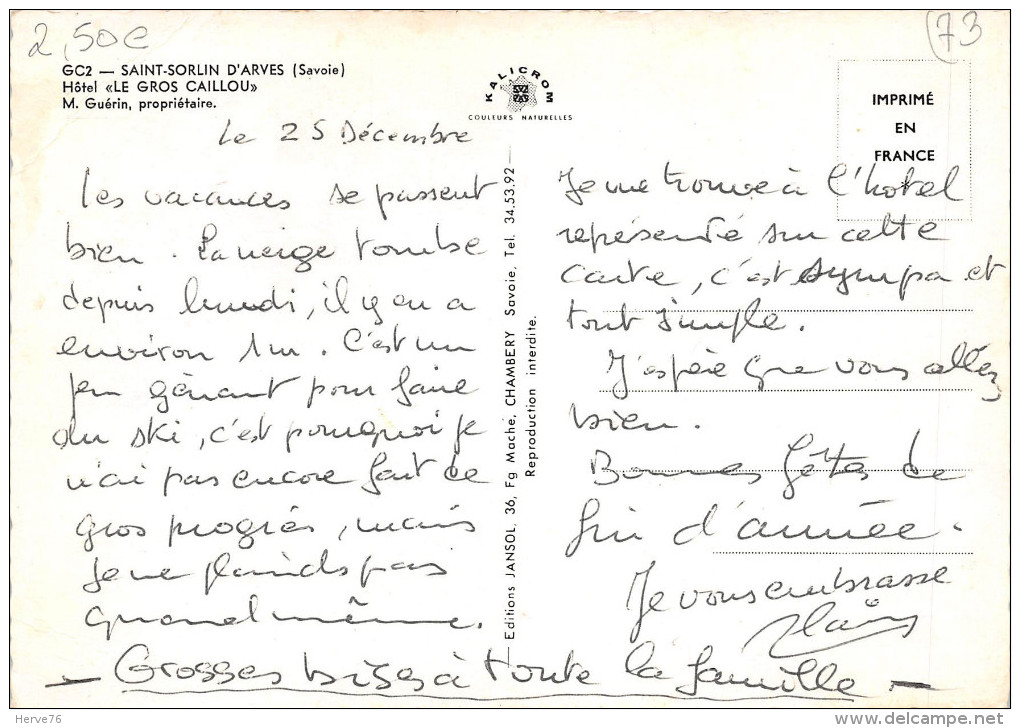 2,50€
73
GC2 — SAINT-SORLIN D'ARVES (Savoie)
Hôtel «LE GROS CAILLOU»
M. Guérin, propriétaire.
KALICROM
COULEURS NATURELLES
IMPRIMÉ
EN
FRANCE
Le 25 Décembre
Les vacances se passent
bien. La neige tombe
depuis lundi, il y en a
environ 1m. C'est un
peu gênant pour faire
du ski, c'est pourquoi je
n'ai pas encore fait de
gros progrès, mais
je ne plains pas
quand même.
Editions JANSOL, 36, Fg Maché, CHAMBERY Savoie, Tel. 34.53.92
Reproduction interdite.
Je me trouve à l'hotel
représenté sur cette
carte, c'est sympa et
tout simple.
J'espère que vous allez
bien.
Bonnes fêtes de
fin d'année.
Je vous embrasse
— Grosses bises à toute la famille —
Herve76
www.delcampe.net